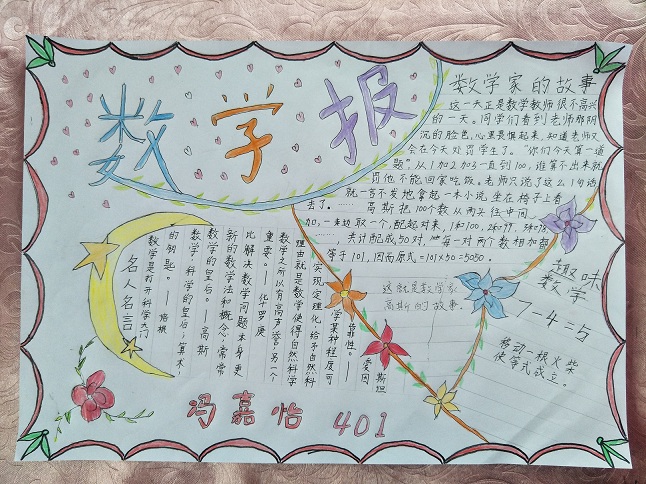 数学报
数学家的故事
这一天正是数学教师很不高兴
的一天。同学们看到老师那阴
沉的脸色,心里畏惧起来,知道老师又
会在今天处罚学生了。“你们今天算一道
题,从1加2加3一直到100,谁算不出来就
罚他不能回家吃饭。老师只说了这么1句话
就一言不发地拿起一本小说坐在椅子上看
去了。……高斯把100个数从两头往中间
加,一边取一个,配起对来,1和100,2和99,3和98
……共计配成50对,每一对两个数相加都
等于101,因而原式=101×50=5050。
这就是数学家
高斯的故事。
趣味
数学
7-4=5
移动一根火柴
使等式成立。
名人名言
数学是打开科学大门
的钥匙。——培根
数学:科学的皇后;算术:
数学的皇后。——高斯
新的数学法和概念,常常
比解决数学问题本身更
重要。——华罗庚
数学之所以有高声誉,另一个
理由就是数学使得自然科学
实现定理化,给予自然科
学某种程度可
靠性。——
爱因
斯坦
冯嘉怡 401